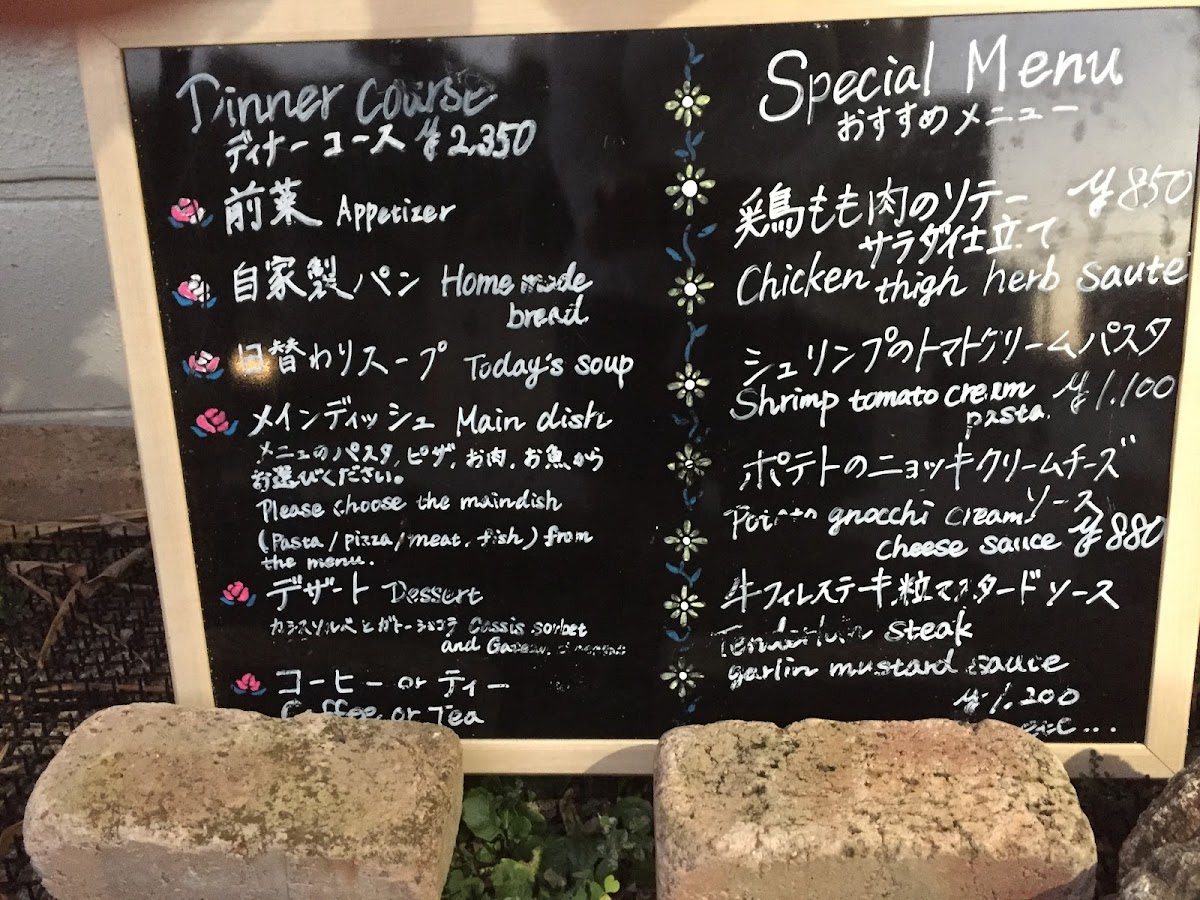 Dinner course
ディナーコース ¥2,350
前菜 Appetizer
自家製パン Home made
bread
日替わりスープ Today's soup
メインディッシュ Main dish
メニュのパスタ, ピザ, お肉, お魚から
お選びください。
Please choose the maindish
(Pasta / pizza / meat, fish) from
the menu.
デザート Dessert
カシスソルベとガトーショコラ Cassis sorbet
and
コーヒー or ティー
Coffee or Tea
Special Menu
おすすめメニュー
鶏もも肉のソテー ¥850
サラダ仕立て
Chicken thigh herb saute
シュリンプのトマトクリームパスタ
Shrimp tomato cream ¥1,100
pasta
ポテトのニョッキクリームチーズ
ソース
Potato gnocchi cream
cheese sauce ¥880
牛フィレステーキ粒マスタードソース
steak
garlin mustard sauce
¥1,200
etc...